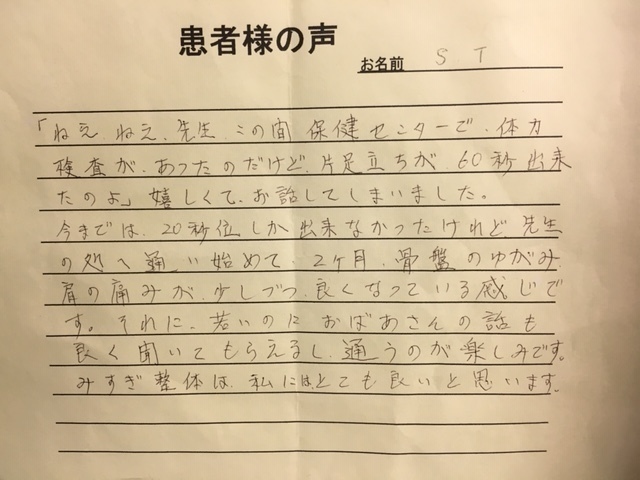 患者様の声
お名前 S T
「ねえ、ねえ、先生、この間 保健センターで、体力
検査が、あったのだけど、片足立ちが、60秒出来
たのよ」嬉しくて、お話してしまいました。
今までは、20秒位しか出来なかったけれど、先生
の処へ通い始めて 2ヶ月、骨盤のゆがみ、
肩の痛みが、少しづつ、良くなっている感じで
す。それに、若いのに おばあさんの話も
良く聞いてもらえるし、通うのが楽しみです。
みすぎ整体は、私には、とても良いと思います。